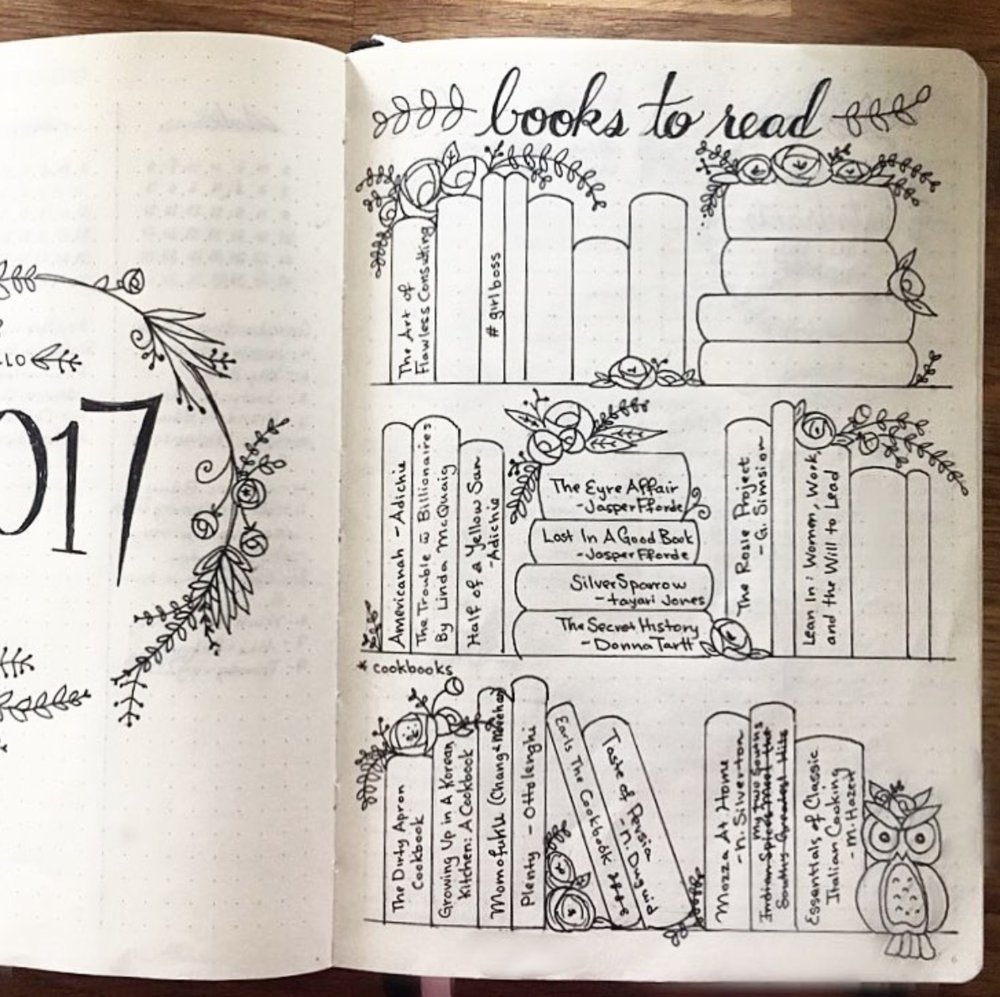 books to read
The Art of
Flawless Consulting
# girlboss
LO
017
Americanah - Adichie
The Trouble w Billionaires
By Linda McQuaig
Half of a Yellow Sun
- Adichie
The Eyre Affair
- Jasper Fforde
Lost In A Good Book
- Jasper Fforde
Silver Sparrow
- tayari Jones
The Secret History
- Donna Tartt
The Rosie Project
- G. Simsion
Lean in: Women, Work,
and the Will to Lead
* cookbooks
The Dirty Apron
Cookbook
Growing Up in A Korean
Kitchen: A Cookbook
Momofuku (Chang & Meehan)
Plenty - Ottolenghi
Earls The Cookbook
Taste of Persia
- N. Duguid
Mozza At Home
- N. Silverton
My Two Souths
Indian Spices Meet the
South's Greatest Hits
Essentials of Classic
Italian Cooking
- M. Hazen
6